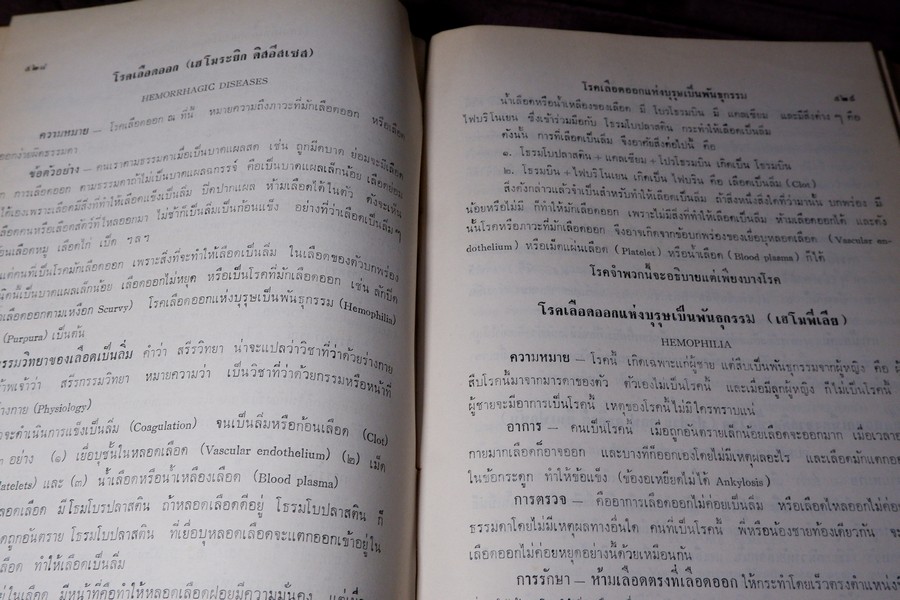 ๕๒๘
โรคเลือดออก (เฮโมระยิก ดิสอีสเซส)
HEMORRHAGIC DISEASES
ความหมาย — โรคเลือดออก ณ ที่นี้ หมายความถึงภาวะที่มักเลือดออก หรือเลือด
ออกง่ายผิดธรรมดา
ข้อตัวอย่าง — คนเราตามธรรมดาเมื่อเป็นบาดแผลสด เช่น ถูกมีดบาด ย่อมจะมีเลือด
การเลือดออก ตามธรรมดาถ้าไม่เป็นบาดแผลฉกรรจ์ คือเป็นบาดแผลเล็กน้อย เลือดย่อม
ได้เองเพราะเลือดมีสิ่งที่ทำให้เลือดแข็งเป็นลิ่ม ปิดปากแผล ห้ามเลือดได้ในตัว ดังจะเห็น
เลือดคนหรือเลือดสัตว์ที่ไหลออกมา ไม่ช้าก็เป็นลิ่มเป็นก้อนแข็ง อย่างที่ว่าเลือดเป็นลิ่มๆ
เลือดหมู เลือดไก่ เป็ด ฯลฯ
แต่คนที่เป็นโรคมักเลือดออก เพราะสิ่งที่จะทำให้เลือดเป็นลิ่ม ในเลือดของตัวบกพร่อง
นิดนี้เป็นบาดแผลเล็กน้อย เลือดออกไม่หยุด หรือเป็นโรคที่มักเลือดออก เช่น ลักปิด
เลือดออกตามเหงือก Scurvy) โรคเลือดออกแห่งบุรุษเป็นพันธุกรรม (Hemophilia)
(Purpura) เป็นต้น
กรรมวิทยาของเลือดเป็นลิ่ม คำว่า สรีรวิทยา น่าจะแปลว่าวิชาที่ว่าด้วยร่างกาย
ข้าพเจ้าว่า สรีรกรรมวิทยา หมายความว่า เป็นวิชาที่ว่าด้วยกรรมหรือหน้าที่
ร่างกาย (Physiology)
จะดำเนินการแข็งเป็นลิ่ม (Coagulation) จนเป็นลิ่มหรือก้อนเลือด (Clot)
๓ อย่าง (๑) เยื่อบุชั้นในหลอดเลือด (Vascular endothelium) (๒) เม็ด
latelets) และ (๓) น้ำเลือดหรือน้ำเหลืองเลือด (Blood plasma)
หลอดเลือด มีโธมโบรปลาสติน ถ้าหลอดเลือดดีอยู่ โธรมโบปลาสติน ก็
ถูกอันตราย โธรมโบปลาสติน ที่เยื่อบุหลอดเลือดจะแตกออกเข้าอยู่ใน
เลือด ทำให้เลือดเป็นลิ่ม
ในเลือด มีหน้าที่คือทำให้หลอดเลือดฝอยมีความมั่นคง
โรคเลือดออกแห่งบุรุษเป็นพันธุกรรม
๕๒๙
น้ำเลือดหรือน้ำเหลืองของเลือด มี โปรโธรมบิน มี แคลเซียม และมีสิ่งต่างๆ คือ
ไฟบริโนเยน ซึ่งเข้าร่วมมือกับ โธรมโบปลาสติน กระทำให้เลือดเป็นลิ่ม
ดังนั้น การที่เลือดเป็นลิ่ม จึงอาศัยสิ่งต่อไปนี้ คือ
๑. โธรมโบปลาสติน + แคลเซียม + โปรโธรมบิน เกิดเป็น โธรมบิน
๒. โธรมบิน + ไฟบริโนเยน เกิดเป็น ไฟบริน คือ เลือดเป็นลิ่ม (Clot)
สิ่งดังกล่าวแล้วจำเป็นสำหรับทำให้เลือดเป็นลิ่ม ถ้าสิ่งหนึ่งสิ่งใดที่ว่ามานั้น บกพร่อง มี
น้อยหรือไม่มี ก็ทำให้มักเลือดออก เพราะไม่มีสิ่งที่ทำให้เลือดเป็นลิ่ม ห้ามเลือดออกได้ และดัง
นั้นโรคหรือภาวะที่มักเลือดออก จึงอาจเกิดจากข้อบกพร่องของเยื่อบุหลอดเลือด (Vascular en-
dothelium) หรือเม็ดแผ่นเลือด (Platelet) หรือน้ำเลือด (Blood plasma) ก็ได้
โรคจำพวกนี้จะอธิบายแต่เพียงบางโรค
โรคเลือดออกแห่งบุรุษเป็นพันธุกรรม (เฮโมฟีเลีย)
HEMOPHILIA
ความหมาย — โรคนี้ เกิดเฉพาะแก่ผู้ชาย แต่สืบเป็นพันธุกรรมจากผู้หญิง คือ
สืบโรคนี้มาจากมารดาของตัว ตัวเองไม่เป็นโรคนี้ และเมื่อมีลูกผู้หญิง ก็ไม่เป็นโรคนี้
ผู้ชายจะมีอาการเป็นโรคนี้ เหตุของโรคนี้ไม่มีใครทราบแน่
อาการ — คนเป็นโรคนี้ เมื่อถูกอันตรายเล็กน้อยเลือดจะออกมาก เมื่อเวลาออก
กายมากเลือดก็อาจออก และบางทีก็ออกเองโดยไม่มีเหตุผลอะไร และเลือดมักแตกออก
ในข้อกระดูก ทำให้ข้อแข็ง (ข้องอเหยียดไม่ได้ Ankylosis)
การตรวจ — คืออาการเลือดออกไม่ค่อยเป็นลิ่ม หรือเลือดไหลออกไม่ค่อย
ธรรมดาโดยไม่มีเหตุผลทางอื่นใด คนที่เป็นโรคนี้ พี่หรือน้องชายท้องเดียวกัน
เลือดออกไม่ค่อยหยุดอย่างนี้ด้วยเหมือนกัน
การรักษา — ห้ามเลือดตรงที่เลือดออก ให้กระทำโดยเร็วตรงตำแหน่งที่